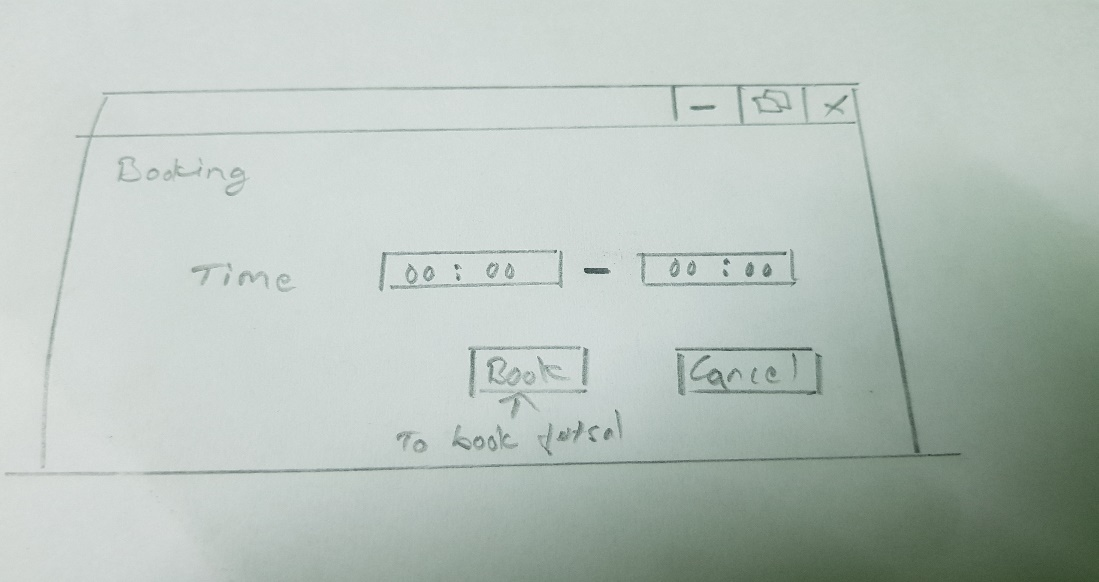 Booking
Time 00 : 00 - 00 : 00
Book Cancel
To book futsal